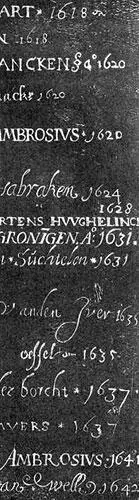 ART * 1618
N 1618
ANCKEN§ Aº 1620
nacks 1620
AMBROSIVS * 1620
abraken 1624
1628
RTENS HUVGHELINCK
GRONINGEN, Aº: 1631.
Süchtelen * 1631
Vanden 1635
oeffel 1635
er borcht * 1637
WVERS * 1637
AMBROSIVS. 164
well 164